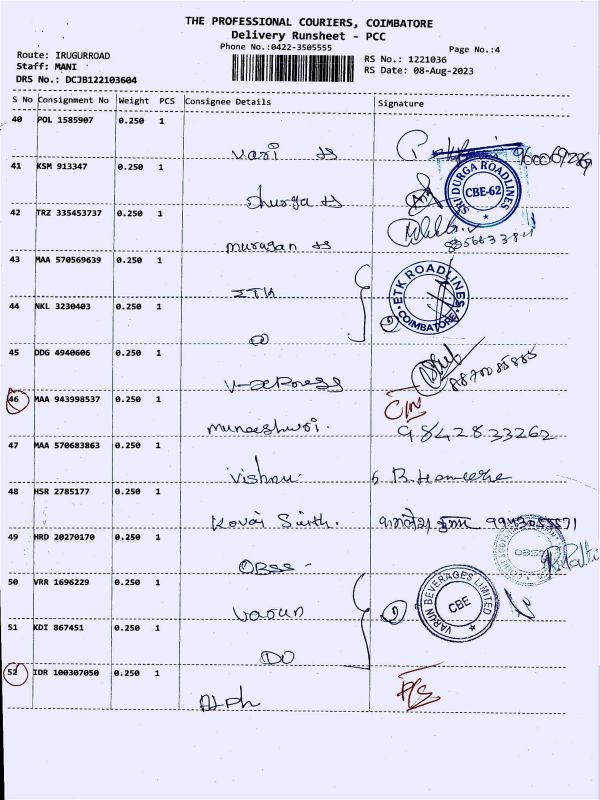 THE PROFESSIONAL COURIERS, COIMBATORE
Delivery Runsheet - PCC
Phone No.:0422-3505555
Page No.:4
Route: IRUGURROAD
Staff: MANI
DRS No.: DCJB122103604
RS No.: 1221036
RS Date: 08-Aug-2023
S No Consignment No Weight PCS Consignee Details Signature
40 POL 1585907 0.250 1
vari
41 KSM 913347 0.250 1
SRI DURGA ROADLINES
CBE-62
Dhurga
42 TRZ 335453737 0.250 1
murugan
43 MAA 570569639 0.250 1
ETK
ETK ROADLINES
COIMBATORE
44 NKL 3230403 0.250 1
45 DDG 4940606 0.250 1
V-Xpress
46 MAA 943998537 0.250 1
muneeshwri. 9842833262
47 MAA 570683863 0.250 1
Vishnu.
48 HSR 2785177 0.250 1
Kovai
49 HRD 20270170 0.250 1
OBSS -
50 VRR 1696229 0.250 1
varun
VARUN BEVERAGES LIMITED
CBE
51 KDI 867451 0.250 1
DO
52 IDR 100307050 0.250 1
Alph